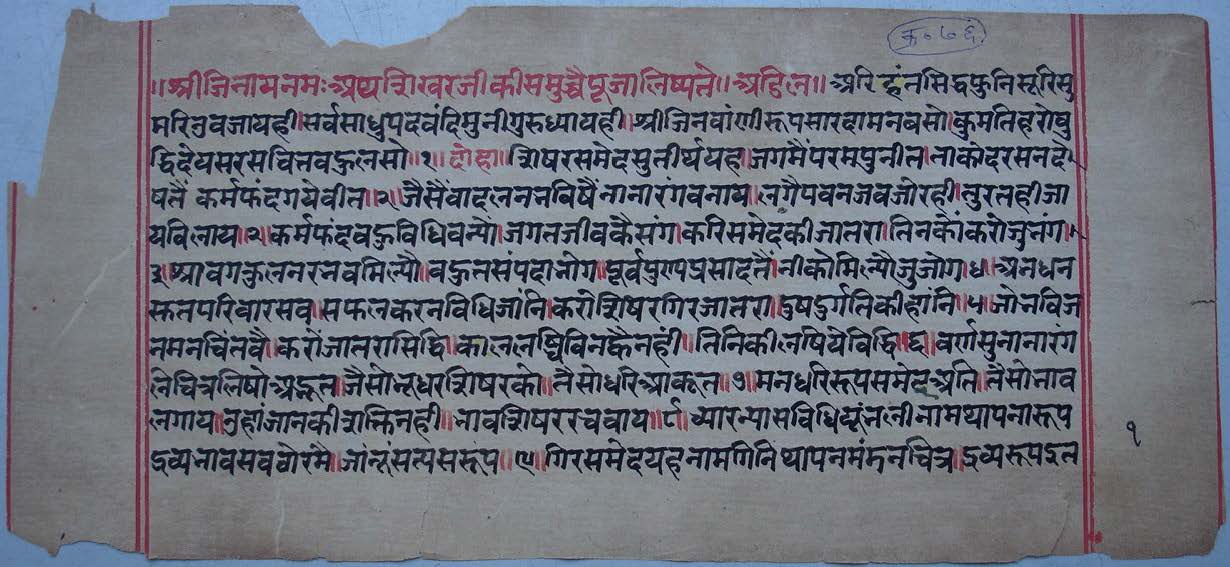 क्र॰ ७६
॥श्रीजिनायनमः अथशिखरजीकीसमुच्चैपूजालिष्यते॥ अडिल॥ अरिहंतसिद्धफुनिसूरिसु
मरिउवजायही।सर्वसाधुपदवंदिसुनीगुरुध्यायही।श्रीजिनवांणीरूपसारदामनवसो।कुमतिहरोवु
द्धिदेयसरसचितवहुलसो॥१॥दोहा॥शिषरसमेदसुतीर्थयहा।जगमैंपरमपुनीत।ताकोदरसनदे
षतैं कर्मफंदगयेवीत।२।जैसैंवादलननविषैं नानारंगवनाय।लगैपवनजवजोरही।तुरतहीजा
यविलाय।२।कर्मफंदवहुविधिवन्यो।जगतजीवकैसंग।करिसमेदकीजातरा।तिनकौंकरोजुनंग।
३।श्रावगकुलनरनवमिल्यौ।वहुतसंपदानोग।पूर्वपुण्यप्रसादतैं।नीकोमिल्यौजुजोग।४।अनधन
स्तनपरिवारसव।सफलकरनविधिजांनि।करोशिषरगिरजातरा।दुषदुर्गतिकीहांनि।५।जोनविज
नमनचिंतवै।करोंजातरासिद्धि।कालल
नहीं।तिनिकी
विद्धि।६।वर्णसुनानारंग
लेचित्रलिषो
जैसोनूधरशिषरको।तैसोधरिआकूत।७।मनधरिरूपसमेदअति।तैसोनाव
लगाय।उहांजानकीशक्तिनही।नावशिषररचवाय।८।च्यारन्यासविधि
नामथापनारूप
द्रव्यनावसववोरमै।
सत्यसरूप॥९॥गिरसमेदयहनामगिनि थापनमंडनचित्र।द्रव्यरूप
१